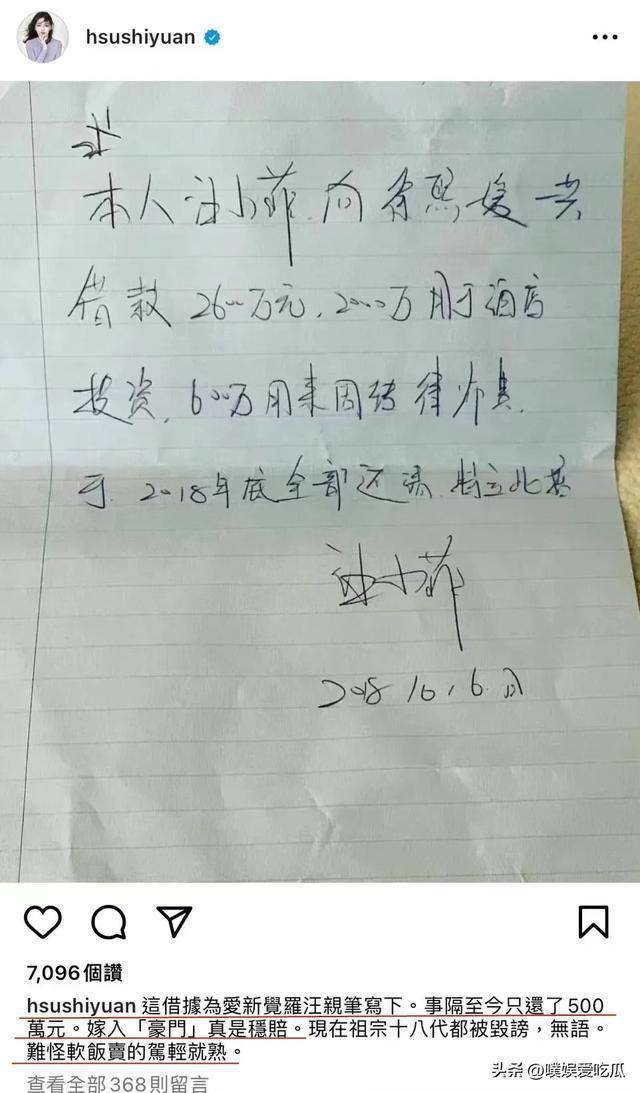 hsushiyuan
本人汪小菲.向徐熙媛共
借款2600万元,2000万用于酒店
投资,600万用来周转律师费.
于2018年底全部还清.特立此据
汪小菲
2018.10.6.日
7,096個讚
hsushiyuan 這借據為愛新覺羅汪親筆寫下。事隔至今只還了500
萬元。嫁入「豪門」真是穩賠。現在祖宗十八代都被毀謗，無語。
難怪軟飯賣的駕輕就熟。
查看全部368則留言
头条 @噗娱爱吃瓜